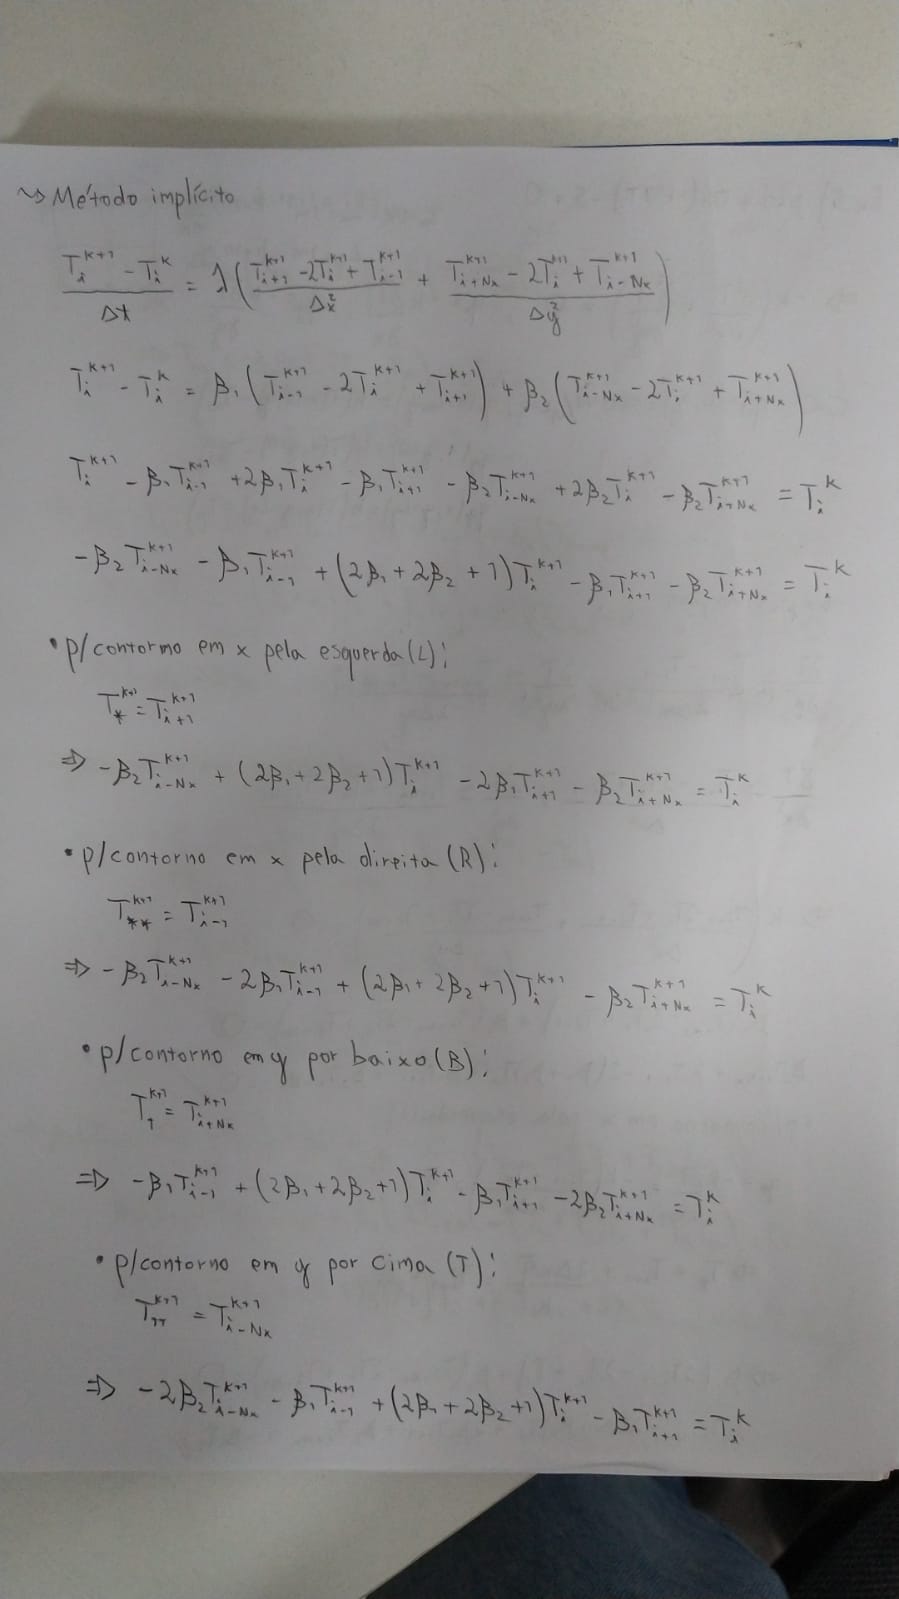 ~> Método implícito
(T_i^{k+1} - T_i^k)/Δt = λ((T_{i+1}^{k+1} - 2T_i^{k+1} + T_{i-1}^{k+1})/Δx² + (T_{i+Nx}^{k+1} - 2T_i^{k+1} + T_{i-Nx}^{k+1})/Δy²)
T_i^{k+1} - T_i^k = β₁(T_{i-1}^{k+1} - 2T_i^{k+1} + T_{i+1}^{k+1}) + β₂(T_{i-Nx}^{k+1} - 2T_i^{k+1} + T_{i+Nx}^{k+1})
T_i^{k+1} - β₁T_{i-1}^{k+1} + 2β₁T_i^{k+1} - β₁T_{i+1}^{k+1} - β₂T_{i-Nx}^{k+1} + 2β₂T_i^{k+1} - β₂T_{i+Nx}^{k+1} = T_i^k
-β₂T_{i-Nx}^{k+1} - β₁T_{i-1}^{k+1} + (2β₁ + 2β₂ + 1)T_i^{k+1} - β₁T_{i+1}^{k+1} - β₂T_{i+Nx}^{k+1} = T_i^k
• p/contorno em x pela esquerda (L):
T_*^{k+1} = T_{i+1}^{k+1}
⇒ -β₂T_{i-Nx}^{k+1} + (2β₁ + 2β₂ + 1)T_i^{k+1} - 2β₁T_{i+1}^{k+1} - β₂T_{i+Nx}^{k+1} = T_i^k
• p/contorno em x pela direita (R):
T_{**}^{k+1} = T_{i-1}^{k+1}
⇒ -β₂T_{i-Nx}^{k+1} - 2β₁T_{i-1}^{k+1} + (2β₁ + 2β₂ + 1)T_i^{k+1} - β₂T_{i+Nx}^{k+1} = T_i^k
• p/contorno em y por baixo (B):
T_†^{k+1} = T_{i+Nx}^{k+1}
⇒ -β₁T_{i-1}^{k+1} + (2β₁ + 2β₂ + 1)T_i^{k+1} - β₁T_{i+1}^{k+1} - 2β₂T_{i+Nx}^{k+1} = T_i^k
• p/contorno em y por cima (T):
T_{††}^{k+1} = T_{i-Nx}^{k+1}
⇒ -2β₂T_{i-Nx}^{k+1} - β₁T_{i-1}^{k+1} + (2β₁ + 2β₂ + 1)T_i^{k+1} - β₁T_{i+1}^{k+1} = T_i^k